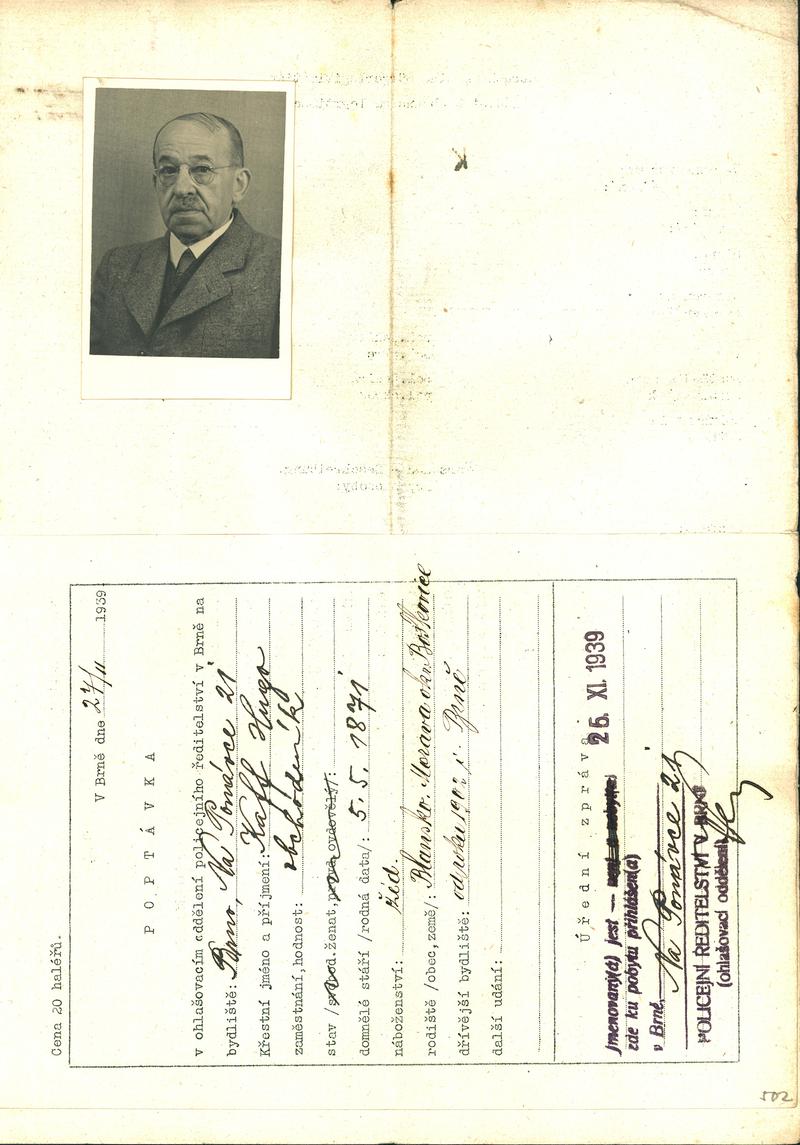 Cena 20 haléřů.
V Brně dne 24/11 1939
POPTÁVKA
v ohlašovacím oddělení policejního ředitelství v Brně na
bydliště: Brno, Na Ponávce 21
Křestní jméno a příjmení: Kaff Hugo
zaměstnání,hodnost: obchodník
stav /svobod.ženat, ovdovělý/:
domnělé stáří /rodná data/: 5. 5. 1871
náboženství: žid.
rodiště /obec,země/: Blansko. Morava okr. Boskovice
dřívější bydliště: od roku 1902 v Brně
další udání:
Úřední zpráva.
25. XI. 1939
Jmenovaný(á) jest —
zde ku pobytu přihlášen(a)
v Brně, Na Ponávce 21
POLICEJNÍ ŘEDITELSTVÍ V BRNĚ
(ohlašovací oddělení)
502